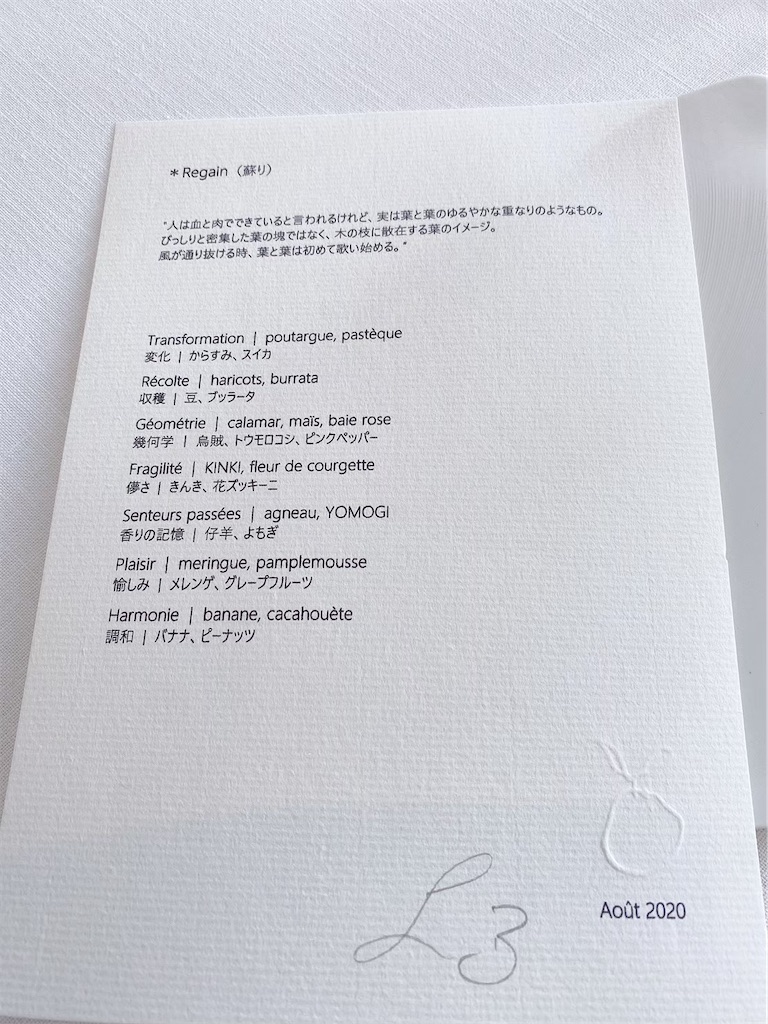 ＊Regain（蘇り）
"人は血と肉でできていると言われるけれど、実は葉と葉のゆるやかな重なりのようなもの。
ぴっしりと密集した葉の塊ではなく、木の枝に散在する葉のイメージ。
風が通り抜ける時、葉と葉は初めて歌い始める。"
Transformation | poutargue, pastèque
変化 | からすみ、スイカ
Récolte | haricots, burrata
収穫 | 豆、ブッラータ
Géométrie | calamar, maïs, baie rose
幾何学 | 烏賊、トウモロコシ、ピンクペッパー
Fragilité | KINKI, fleur de courgette
儚さ | きんき、花ズッキーニ
Senteurs passées | agneau, YOMOGI
香りの記憶 | 仔羊、よもぎ
Plaisir | meringue, pamplemousse
愉しみ | メレンゲ、グレープフルーツ
Harmonie | banane, cacahouète
調和 | バナナ、ピーナッツ
Août 2020
L3